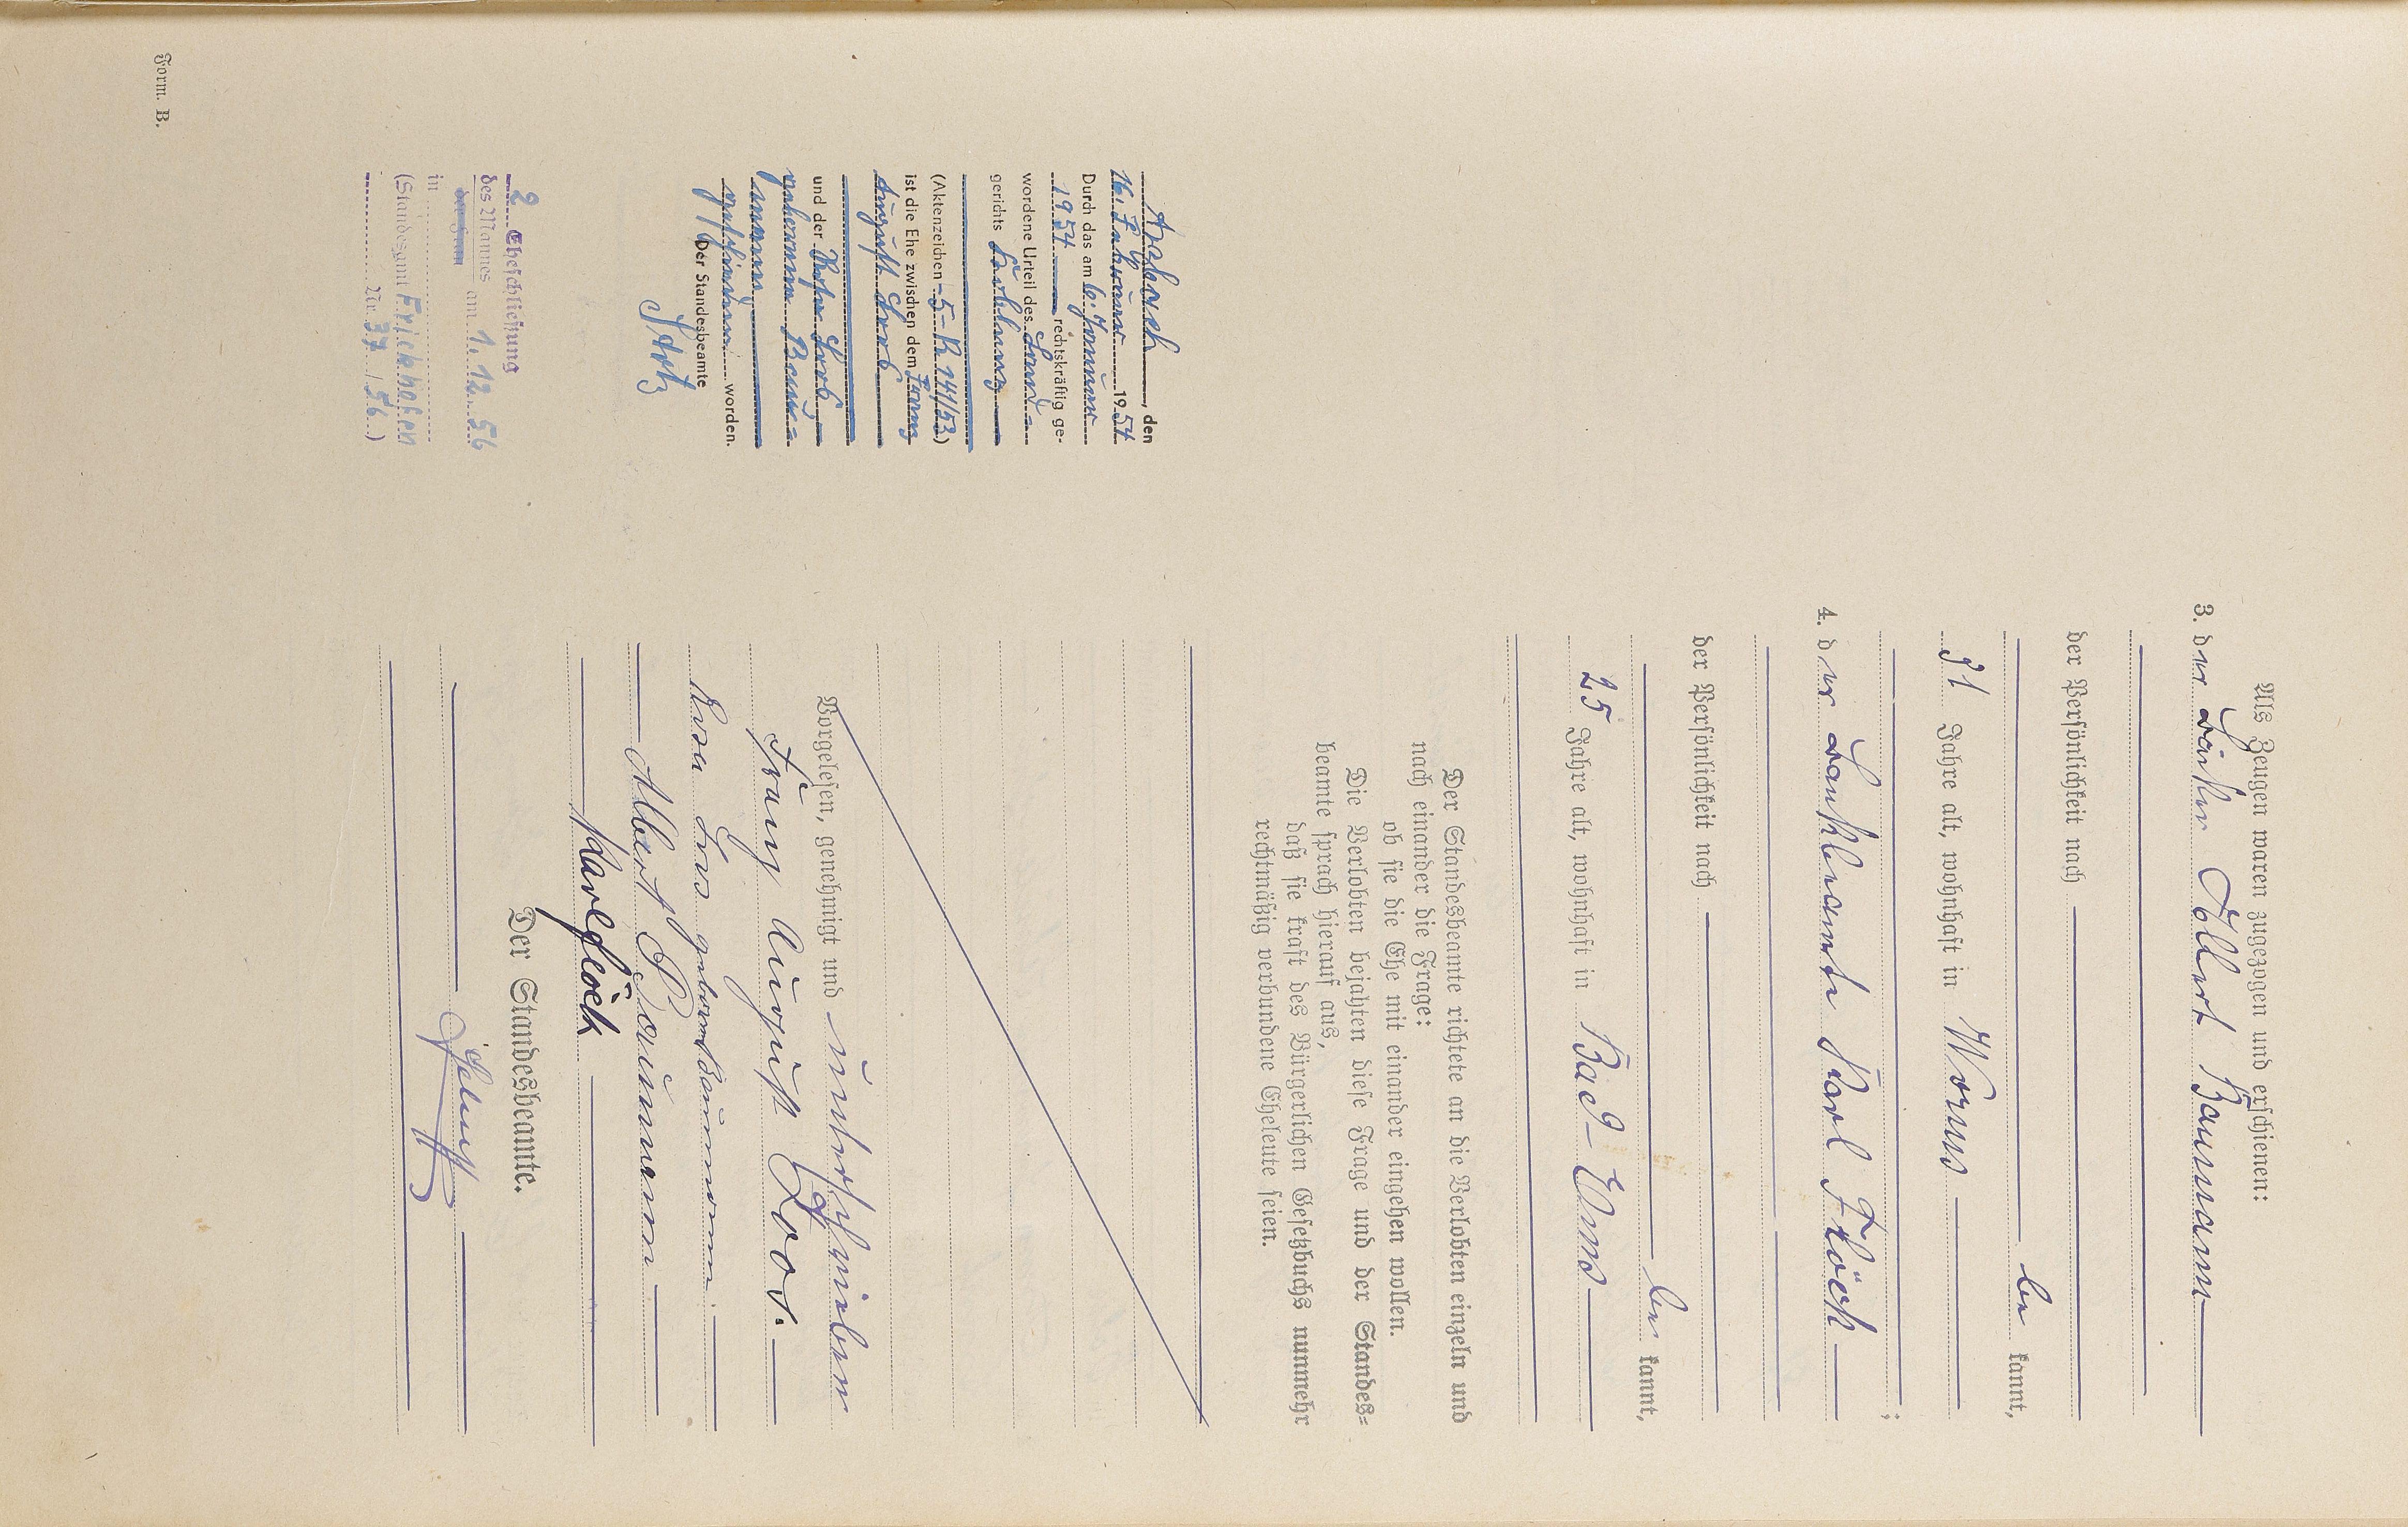 Als Zeugen waren zugezogen und erschienen:
3. der Bäcker Albert Baumann
der Persönlichkeit nach
be kannt,
31 Jahre alt, wohnhaft in Worms
;
4. der Karl Flöck
der Persönlichkeit nach
be kannt,
25 Jahre alt, wohnhaft in Bad-Ems
Der Standesbeamte richtete an die Verlobten einzeln und
nach einander die Frage:
ob sie die Ehe mit einander eingehen wollen.
Die Verlobten bejahten diese Frage und der Standes=
beamte sprach hierauf aus,
daß sie kraft des Bürgerlichen Gesetzbuchs nunmehr
rechtmäßig verbundene Eheleute seien.
Vorgelesen, genehmigt und unterschrieben
Franz August Loos.
Loos geborene Baumann.
Albert Baumann
Karl Flöck
Der Standesbeamte.
Arzbach, den
16. Februar 1954
Durch das am 6. Januar
1954 rechtskräftig ge-
wordene Urteil des Land-
gerichts Koblenz
(Aktenzeichen - 5 - R 144/53)
ist die Ehe zwischen dem Franz
August Loos
und der Loos,
geborene Bau-
mann,
geschieden worden.
Der Standesbeamte
2 Eheschließung
des Mannes am 1.12.56
der Frau
in
(Standesamt Frickhofen
Nr. 37 / 56.)
Form. B.